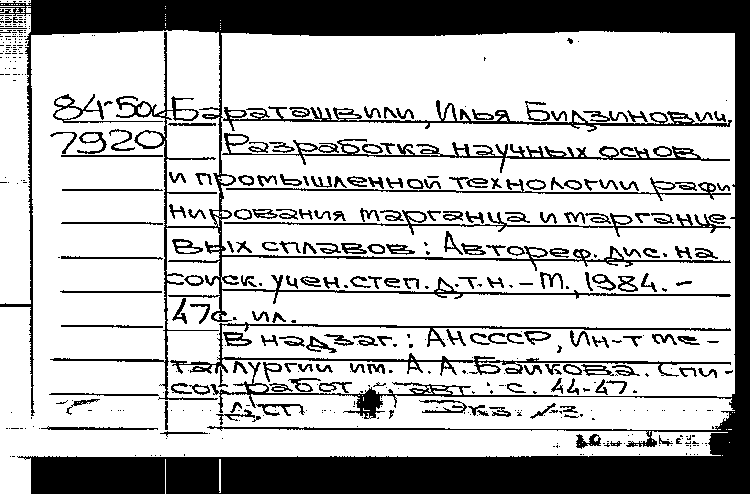 84-50к Бараташвили, Илья Бидзинович.
7920 Разработка научных основ
и промышленной технологии рафи-
нирования марганца и марганце-
вых сплавов : Автореф. дис. на
соиск. учен. степ. д.т.н. – М., 1984. –
47с., ил.
В надзаг. : АНСССР, Ин-т ме-
таллургии им. А. А. Байкова. Спи-
сок работ авт. : с. 44-47.
ДСП Экз. №3.